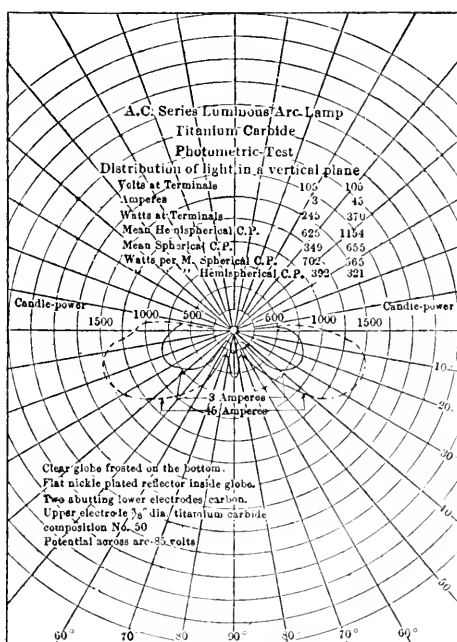 A.C. Series Luminous Arc Lamp
Titanium Carbide
Photometric Test
Distribution of light in a vertical plane
Volts at Terminals 105 105
Amperes 3 45
Watts at Terminals 245 370
Mean Hemispherical C.P. 625 1154
Mean Spherical C.P. 349 655
Watts per M. Spherical C.P. 702 565
" " Hemispherical C.P. 392 321
Candle-power Candle-power
1500 1000 500 500 1000 1500
10°
20°
3 Amperes
45 Amperes
30
Clear globe frosted on the bottom.
Flat nickle plated reflector inside globe.
Two abutting lower electrodes carbon.
Upper electrode 5/8" dia. titanium carbide
composition No. 50
Potential across arc-85 volts
50
60° 70° 80° 90° 80° 70° 60°